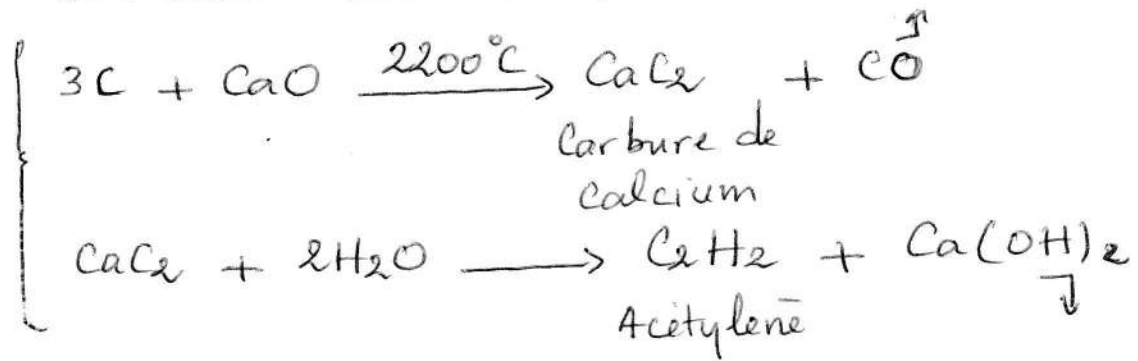 3C + CaO 2200°C → CaC2 + CO ↑
Carbure de
Calcium
CaC2 + 2H2O → C2H2 + Ca(OH)2 ↓
Acétylène